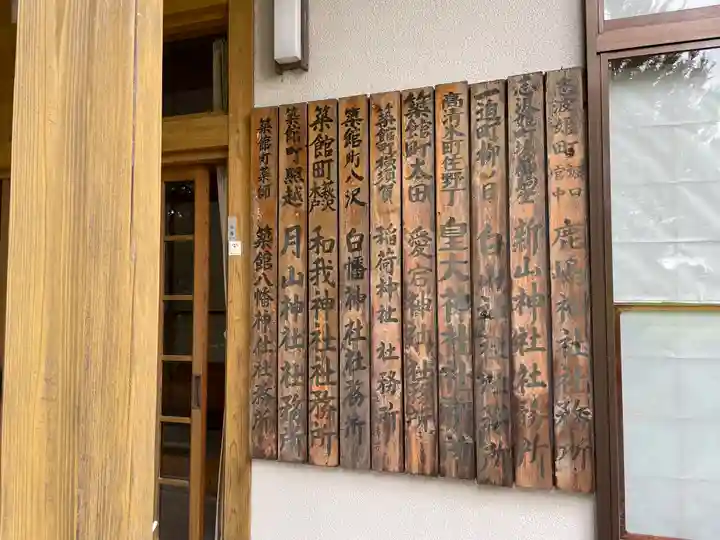 志波姫町 堀口 宮中 鹿嶋神社社務所
新山神社社務所
一迫町柳ノ目
高清水町佐野丁 皇大神社社務所
築館町太田 愛宕神社社務所
築館町横須賀 稲荷神社社務所
築館町八沢 白幡神社社務所
築館町 萩沢 木戸 和我神社社務所
築館町照越 月山神社社務所
築館町薬師 築館八幡神社社務所